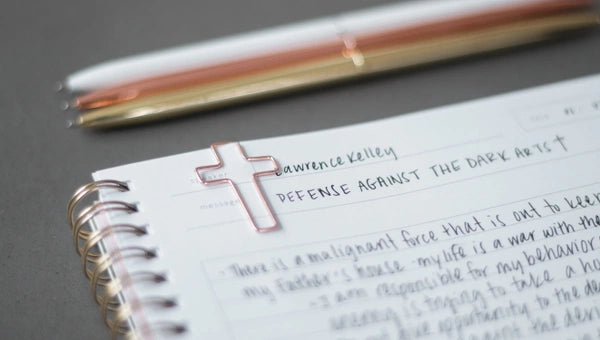 Lawrence Kelley
DEFENSE AGAINST THE DARK ARTS
message
- There is a malignant force that is out to keep
my Father's house - my life is a war with the
- I am responsible for my behavior
enemy is trying to take a
opportunity to the
against the devil